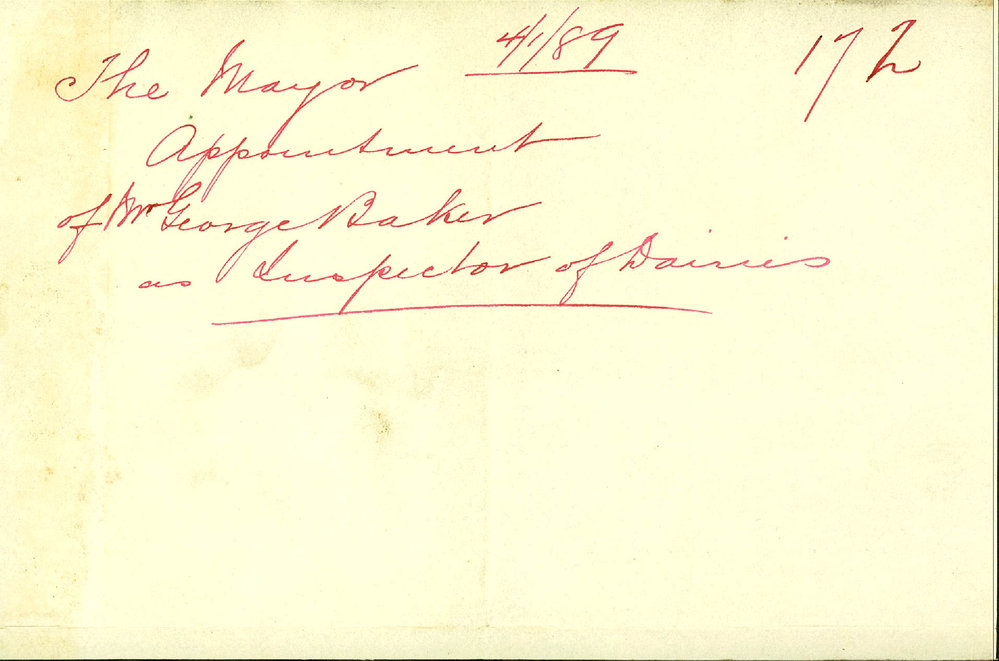 4/1/89 172
The Mayor
Appointment
of Mr George Baker
as Inspector of Dairies